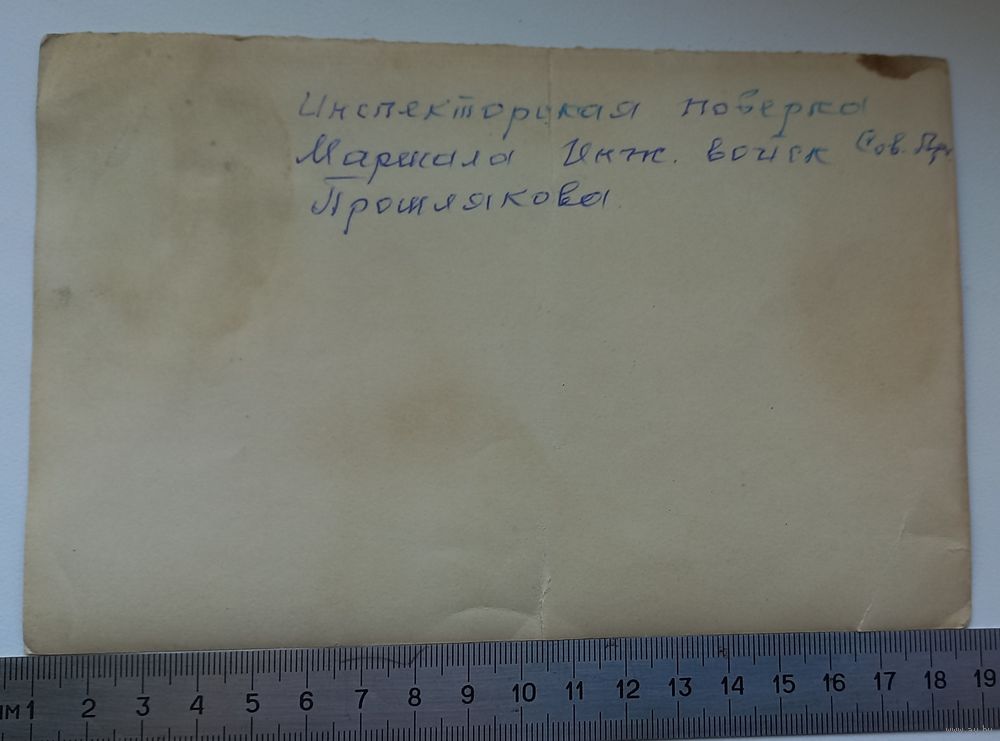 Инспекторская поверка
Маршала Инж. войск Сов. Ар
Прошлякова
мм 1 2 3 4 5 6 7 8 9 10 11 12 13 14 15 16 17 18 19